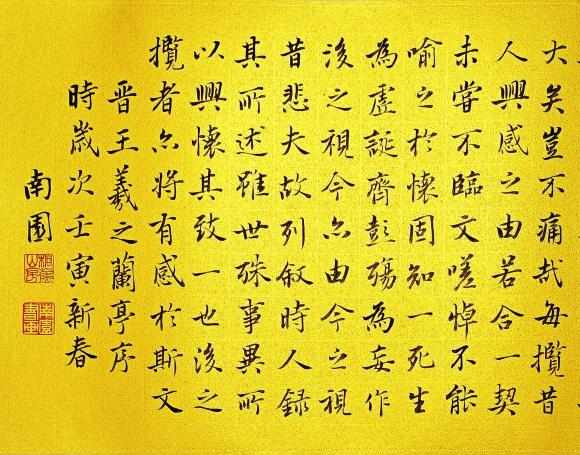 大矣豈不痛哉每攬昔
人興感之由若合一契
未嘗不臨文嗟悼不能
喻之於懷固知一死生
為虛誕齊彭殤為妄作
後之視今亦由今之視
昔悲夫故列敘時人錄
其所述雖世殊事異所
以興懷其致一也後之
攬者亦將有感於斯文
晉王羲之蘭亭序
時歲次壬寅新春
南園